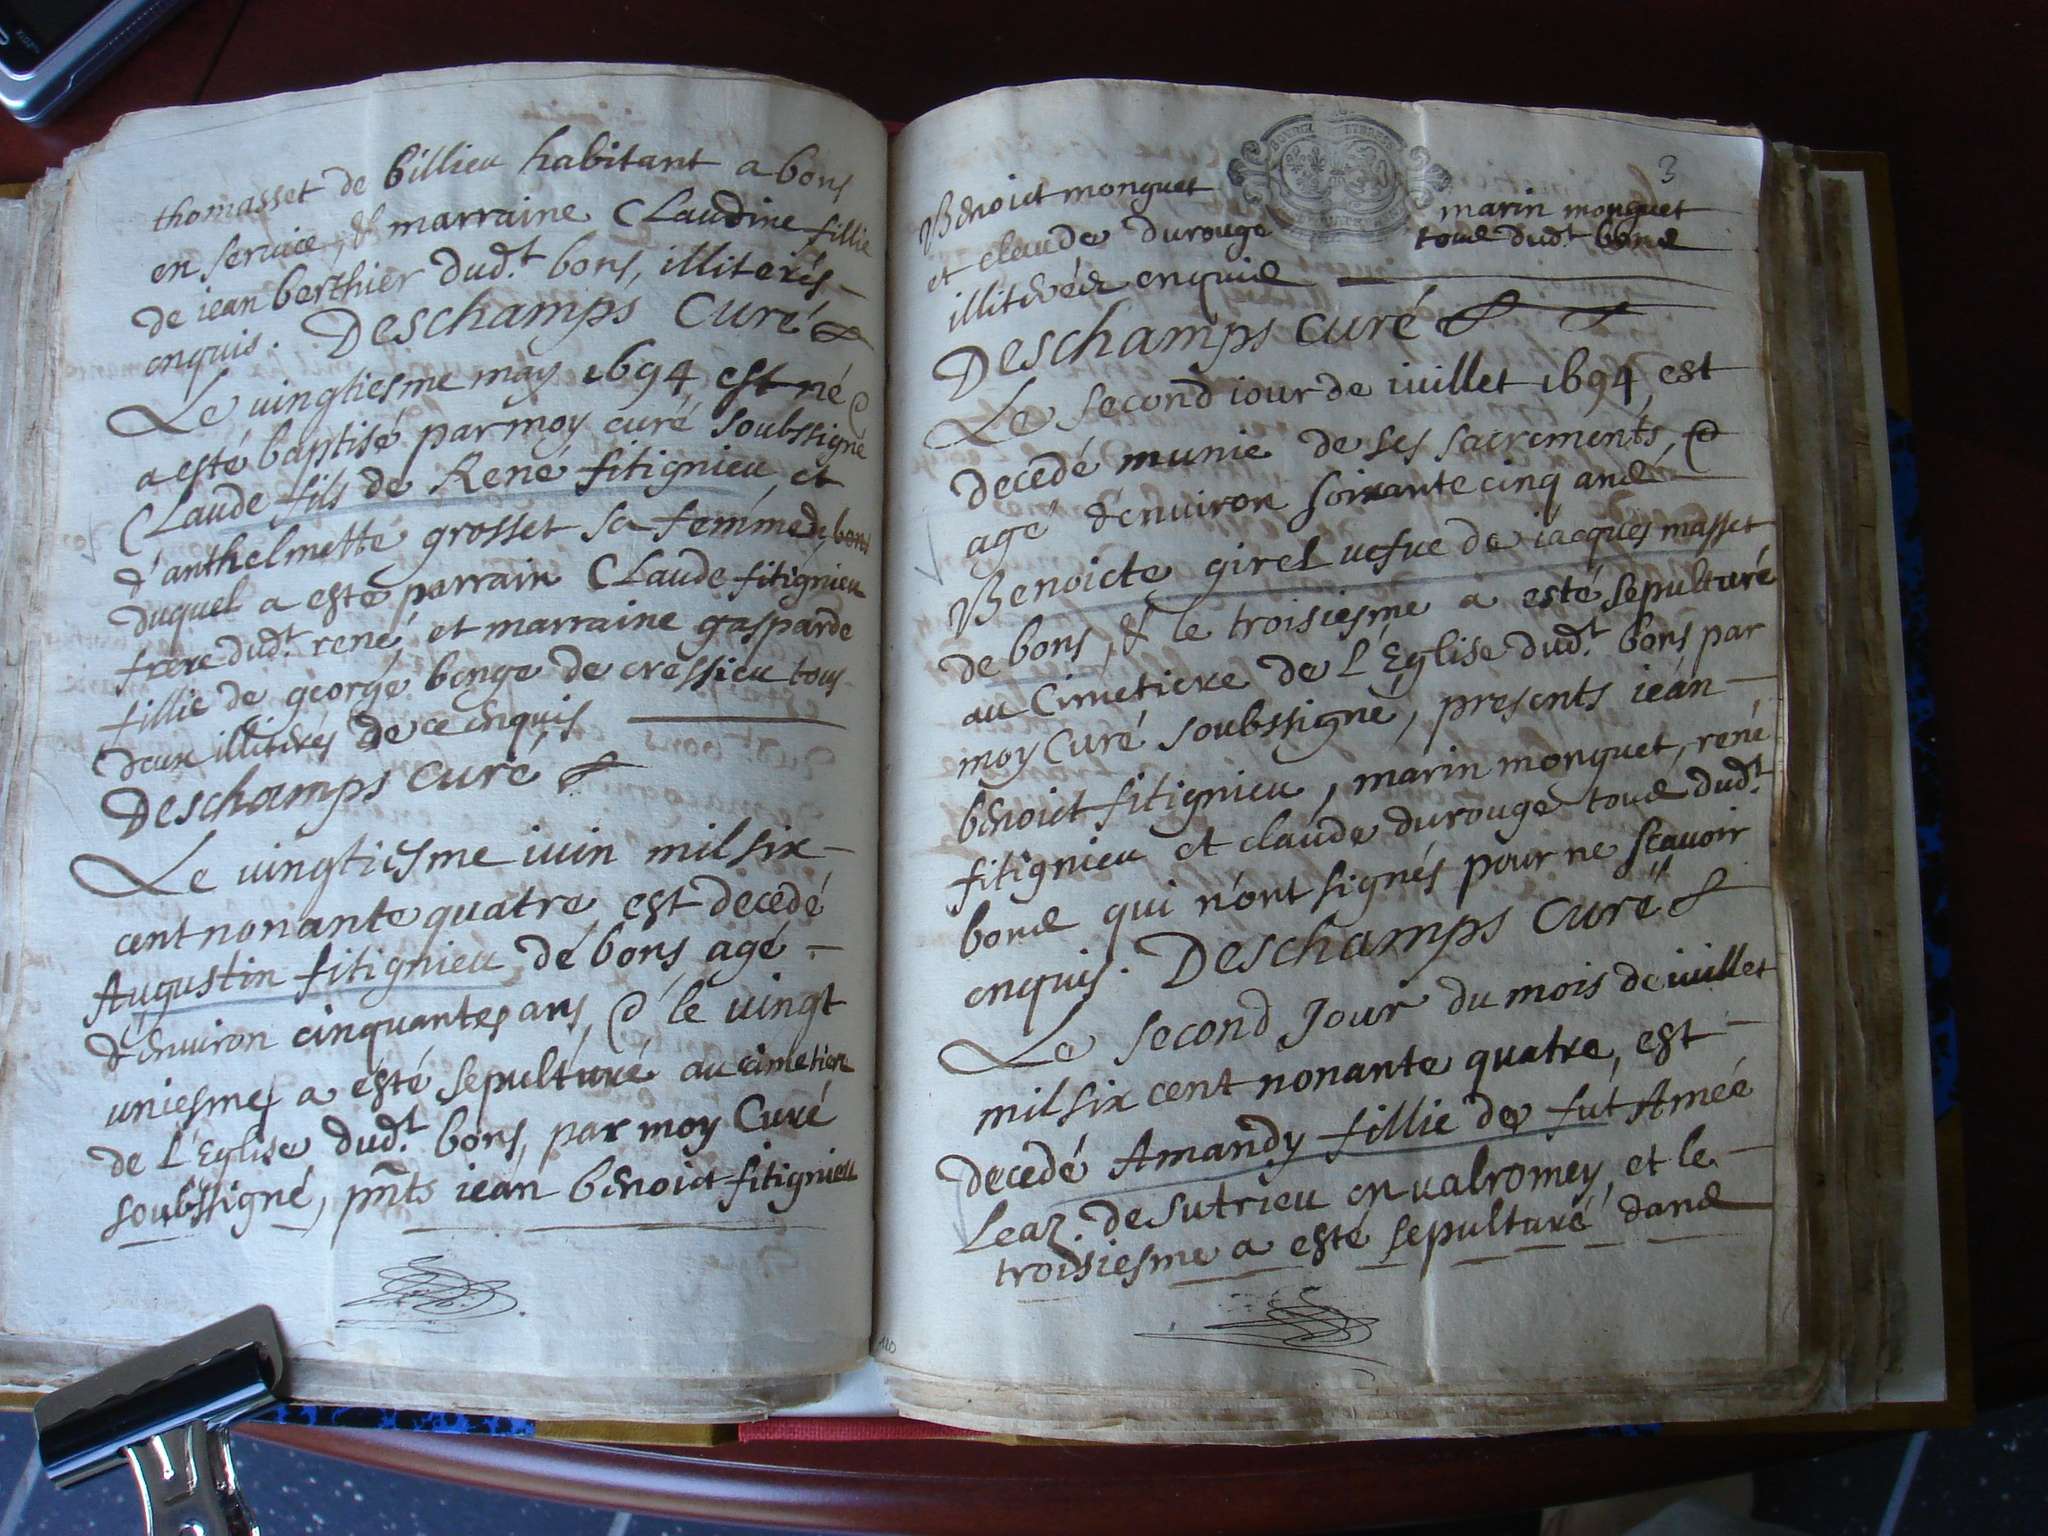 thomasset de billieu habitant a bons
en service, & marraine Claudine fillie
de iean berthier dud.t bons, illiterés
enquis. Deschamps Curé
Le vingtiesme may 1694 est né &
a esté baptisé par moy curé soubssigné
Claude fils de René fitignieu et
d'anthelmette grosset sa femme de bons
duquel a esté parrain Claude fitignieu
frere dud.t rené, et marraine gasparde
fillie de george benge de cressieu tous
deux illiterés de ce enquis
Deschamps curé
Le vingtiesme iuin mil six
cent nonante quatre est decedé
Augustin fitignieu de bons agé
d'environ cinquantes ans, & le vingt
uniesme a esté sepulturé au cimetiere
de l'Eglise dud.t bons, par moy Curé
soubssigné, pnts iean benoict fitignieu
3
Benoict monguet
marin monguet
et claude durouge
tous dud.t bons
illiterés enquis
Deschamps curé
Le second iour de iuillet 1694 est
decedé munie de ses sacrements, &
agé d'enuiron soixante cinq ans
Benoicte girel uefue de iacques masset
de bons, & le troisiesme a esté sepulturé
au Cimetiere de l'Eglise dud.t bons par
moy Curé soubssigné, presents iean
benoict fitignieu, marin monguet, rené
fitignieu et claude durouge tous dud.t
bons qui n'ont signés pour ne scauoir
enquis. Deschamps Curé
Le second Jour du mois de iuillet
mil six cent nonante quatre, est
decedé Amandy fillie de fut Amée
Leaz de sutrieu en ualromey, et le
troisiesme a esté sepulturé dans
120